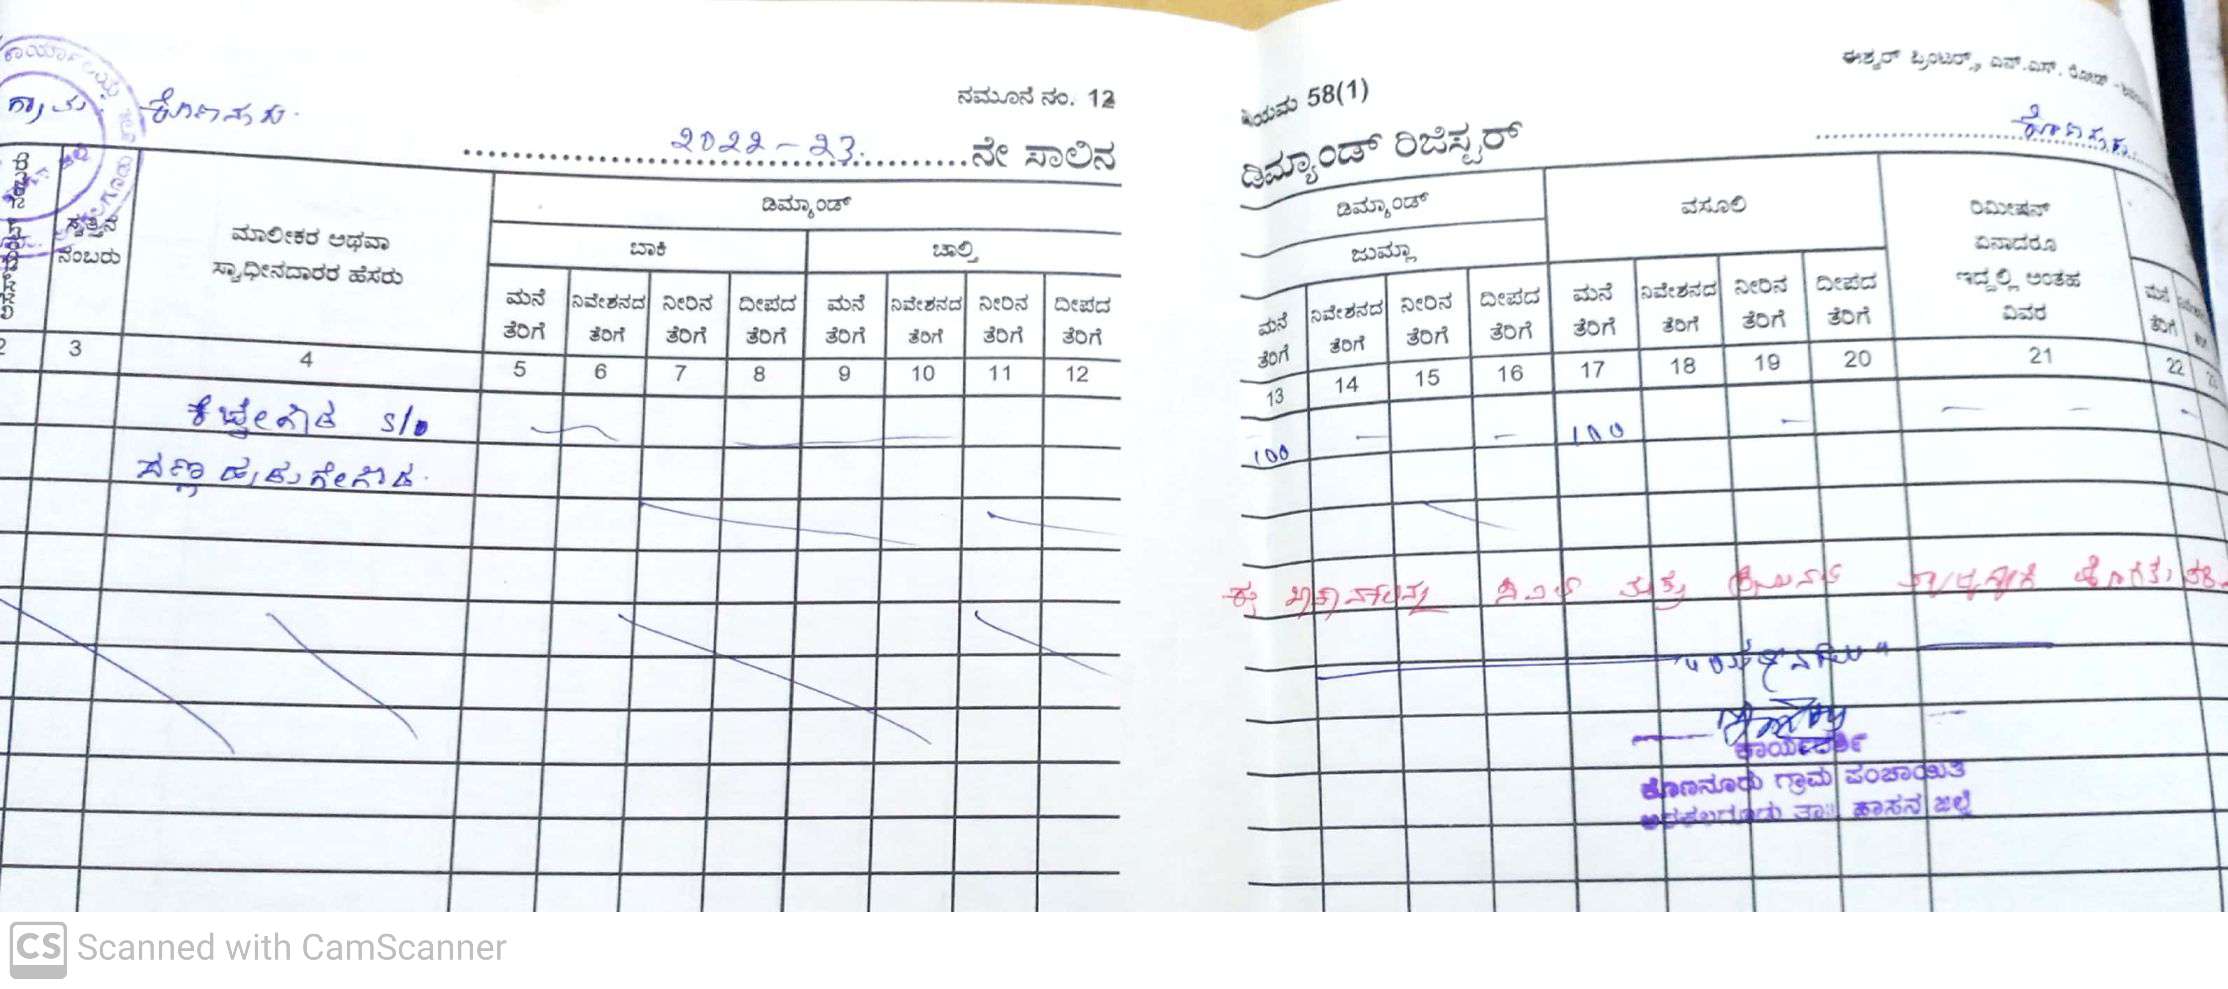 ಕಾರ್ಯಾಲಯ
ಗ್ರಾಮ ಕೊಣನೂರು.
ನಮೂನೆ ನಂ. 12
2022-23. ನೇ ಸಾಲಿನ
ಸ್ವತ್ತಿನ ನಂಬರು
ಮಾಲೀಕರ ಅಥವಾ ಸ್ವಾಧೀನದಾರರ ಹೆಸರು
ಡಿಮ್ಯಾಂಡ್
ಬಾಕಿ ಚಾಲ್ತಿ
ಮನೆ ತೆರಿಗೆ ನಿವೇಶನದ ತೆರಿಗೆ ನೀರಿನ ತೆರಿಗೆ ದೀಪದ ತೆರಿಗೆ ಮನೆ ತೆರಿಗೆ ನಿವೇಶನದ ತೆರಿಗೆ ನೀರಿನ ತೆರಿಗೆ ದೀಪದ ತೆರಿಗೆ
2 3 4 5 6 7 8 9 10 11 12
ಕೆಂಚೇಗೌಡ S/o
ಸಣ್ಣ
ಈಶ್ವರ್ ಪ್ರಿಂಟರ್ಸ್, ಎನ್.ಎಸ್. ರೋಡ್
ನಿಯಮ 58(1)
ಡಿಮ್ಯಾಂಡ್ ರಿಜಿಸ್ಟರ್ ಕೊಣನೂರು
ಡಿಮ್ಯಾಂಡ್ ವಸೂಲಿ
ಜುಮ್ಲಾ
ರಿಮೀಷನ್ ಏನಾದರೂ ಇದ್ದಲ್ಲಿ ಅಂತಹ ವಿವರ
ಮನೆ ತೆರಿಗೆ ನಿವೇಶನದ ತೆರಿಗೆ ನೀರಿನ ತೆರಿಗೆ ದೀಪದ ತೆರಿಗೆ ಮನೆ ತೆರಿಗೆ ನಿವೇಶನದ ತೆರಿಗೆ ನೀರಿನ ತೆರಿಗೆ ದೀಪದ ತೆರಿಗೆ ಮನೆ ತೆರಿಗೆ
13 14 15 16 17 18 19 20 21 22
100 100
ಈ ಸಿವಿಲ್ ಮತ್ತು ಕ್ರಿಮಿನಲ್
ಕಾರ್ಯದರ್ಶಿ
ಕೊಣನೂರು ಗ್ರಾಮ ಪಂಚಾಯಿತಿ
ಅರಕಲಗೂಡು ತಾ|| ಹಾಸನ ಜಿಲ್ಲೆ
CS Scanned with CamScanner